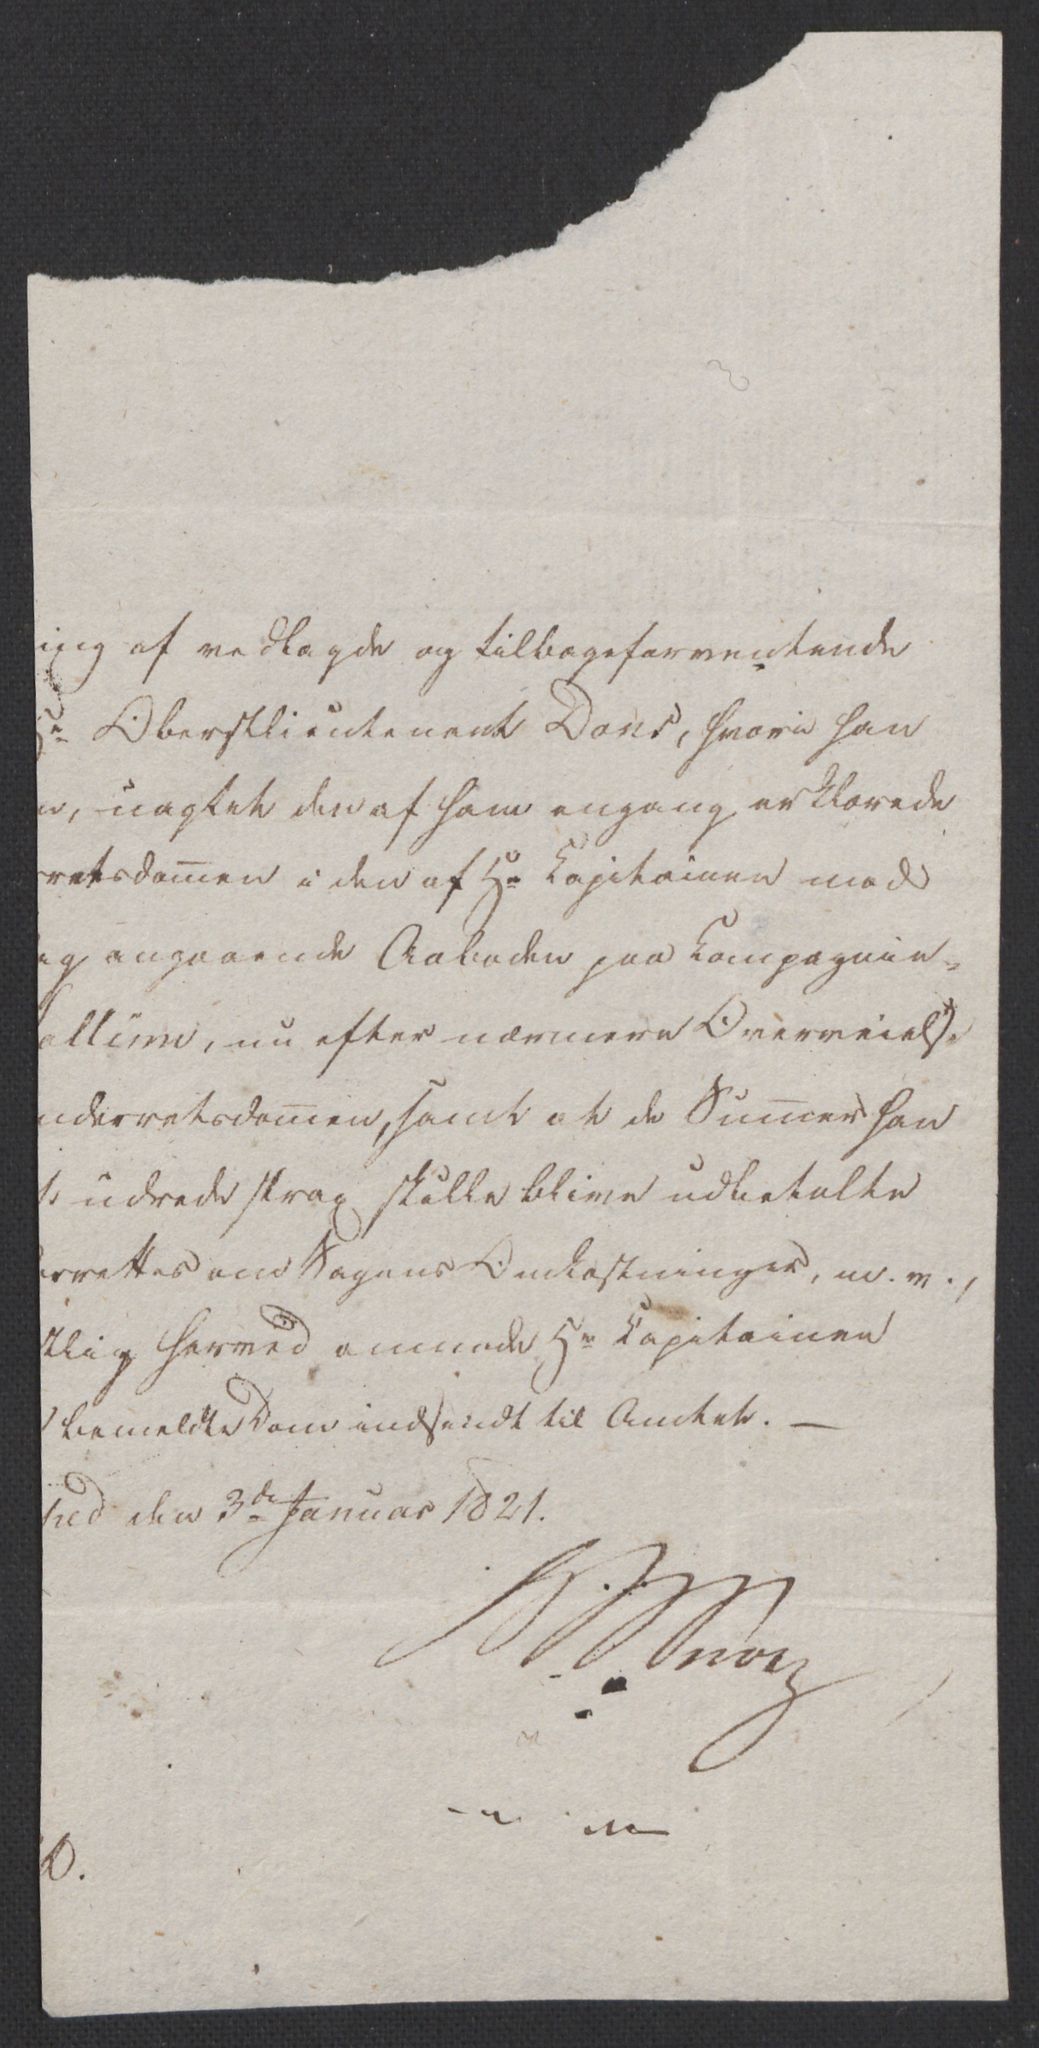 ing af vedlagde og tilbageforventende
Hr Oberstlieutenant Dons, hvori han
n, uagtet den af ham engang erklærede
rretsdom̅en i den af Hr Capitainen mod
ig angaaende Aaboden paa Compagnie-
allum, nu efter nærmere Overveielse
nderretsdom̅en, samt at de Sum̅er han
t udrede strax skulle blive udbetalte
errettes om Sagens Omkostninger, m. v.,
tlig herved anmode Hr Capitainen
bemeldte Dom indsendt til Amtet. —
hed den 3de Januar 1821.